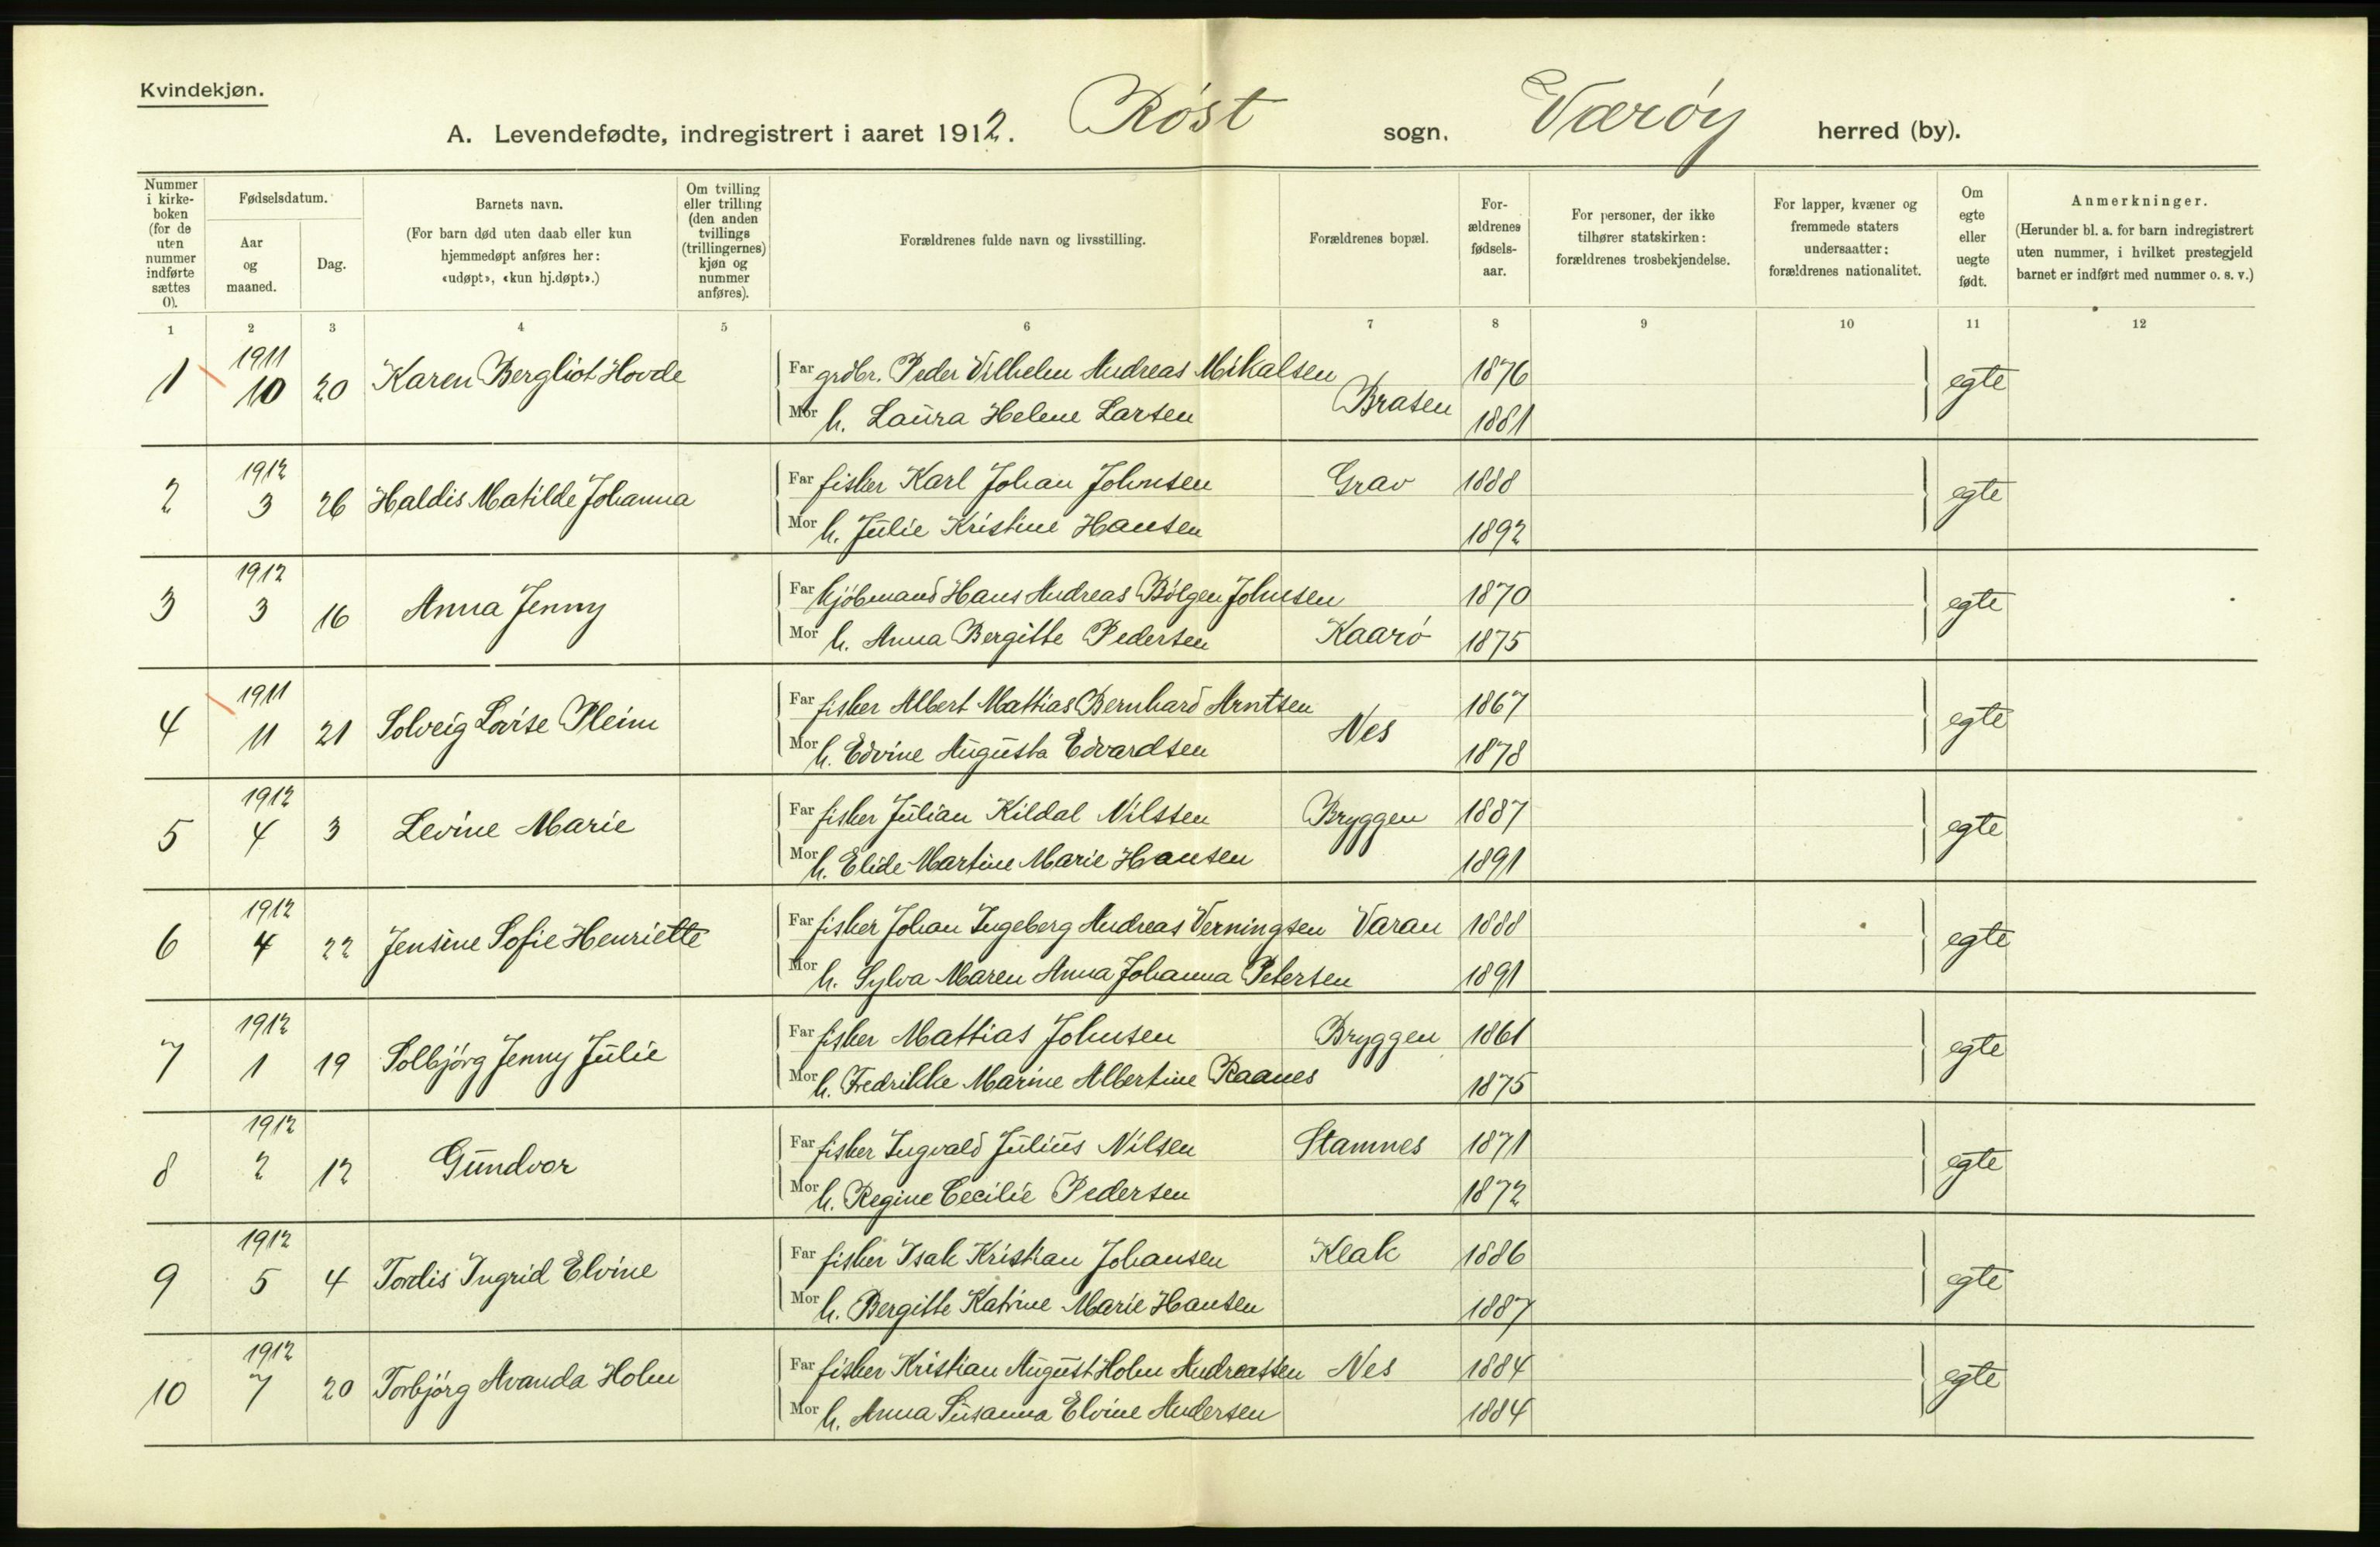 Kvindekjøn.
A. Levendefødte, indregistrert i aaret 1912. Røst sogn. Værøy herred (by).
Nummer i kirke-boken (for de uten nummer indførte sættes 0).
Fødselsdatum.
Aar og maaned.
Dag.
Barnets navn.
(For barn død uten daab eller kun hjemmedøpt anføres her: «udøpt», «kun hj.døpt».)
Om tvilling eller trilling (den anden tvillings (trillingernes) kjøn og nummer anføres).
Forældrenes fulde navn og livsstilling.
Forældrenes bopæl.
For-ældrenes fødsels-aar.
For personer, der ikke tilhører statskirken: forældrenes trosbekjendelse.
For lapper, kvæner og fremmede staters undersaatter: forældrenes nationalitet.
Om egte eller uegte født.
Anmerkninger.
(Herunder bl. a. for barn indregistrert uten nummer, i hvilket prestegjeld barnet er indført med nummer o. s. v.)
1 2 3 4 5 6 7 8 9 10 11 12
1 1911 10 20 Karen Bergliot Hovde Far grdbr. Peder Vilhelm Andreas Mikalsen Brasen 1876 egte
Mor h. Laura Helene Larsen 1881
2 1912 3 26 Haldis Matilde Johanna Far fisker Karl Johan Johnsen Grav 1888 egte
Mor h. Julie Kristine Hansen 1892
3 1912 3 16 Anna Jenny Far kjöbmand Hans Andreas Bölgen Johnsen 1870 egte
Mor h. Anna Bergitte Pedersen Kaarö 1875
4 1911 11 21 Solveig Lovise Pleim Far fisker Albert Mattias Bernhard Arntsen Nes 1867 egte
Mor h. Edvine Augusta Edvardsen 1878
5 1912 4 3 Levine Marie Far fisker Julian Kildal Nilssen Bryggen 1887 egte
Mor h. Elide Martine Marie Hansen 1891
6 1912 4 22 Jensine Sofie Henriette Far fisker Johan Ingeberg Andreas Verningsen Varan 1888 egte
Mor h. Sylva Maren Anna Johanna Petersen 1891
7 1912 1 19 Solbjörg Jenny Julie Far fisker Mattias Johnsen Bryggen 1861 egte
Mor h. Fredrikke Marine Albertine Raanes 1875
8 1912 2 12 Gundvor Far fisker Ingvald Julius Nilsen Stamnes 1871 egte
Mor h. Regine Cecilie Pedersen 1872
9 1912 5 4 Tordis Ingrid Elvine Far fisker Isak Kristian Johansen Klak 1886 egte
Mor h. Bergitte Katrine Marie Hansen 1887
10 1912 7 20 Torbjörg Avanda Holm Far fisker Kristian August Holm Andreassen Nes 1884 egte
Mor h. Anna Susanna Elvine Andersen 1884